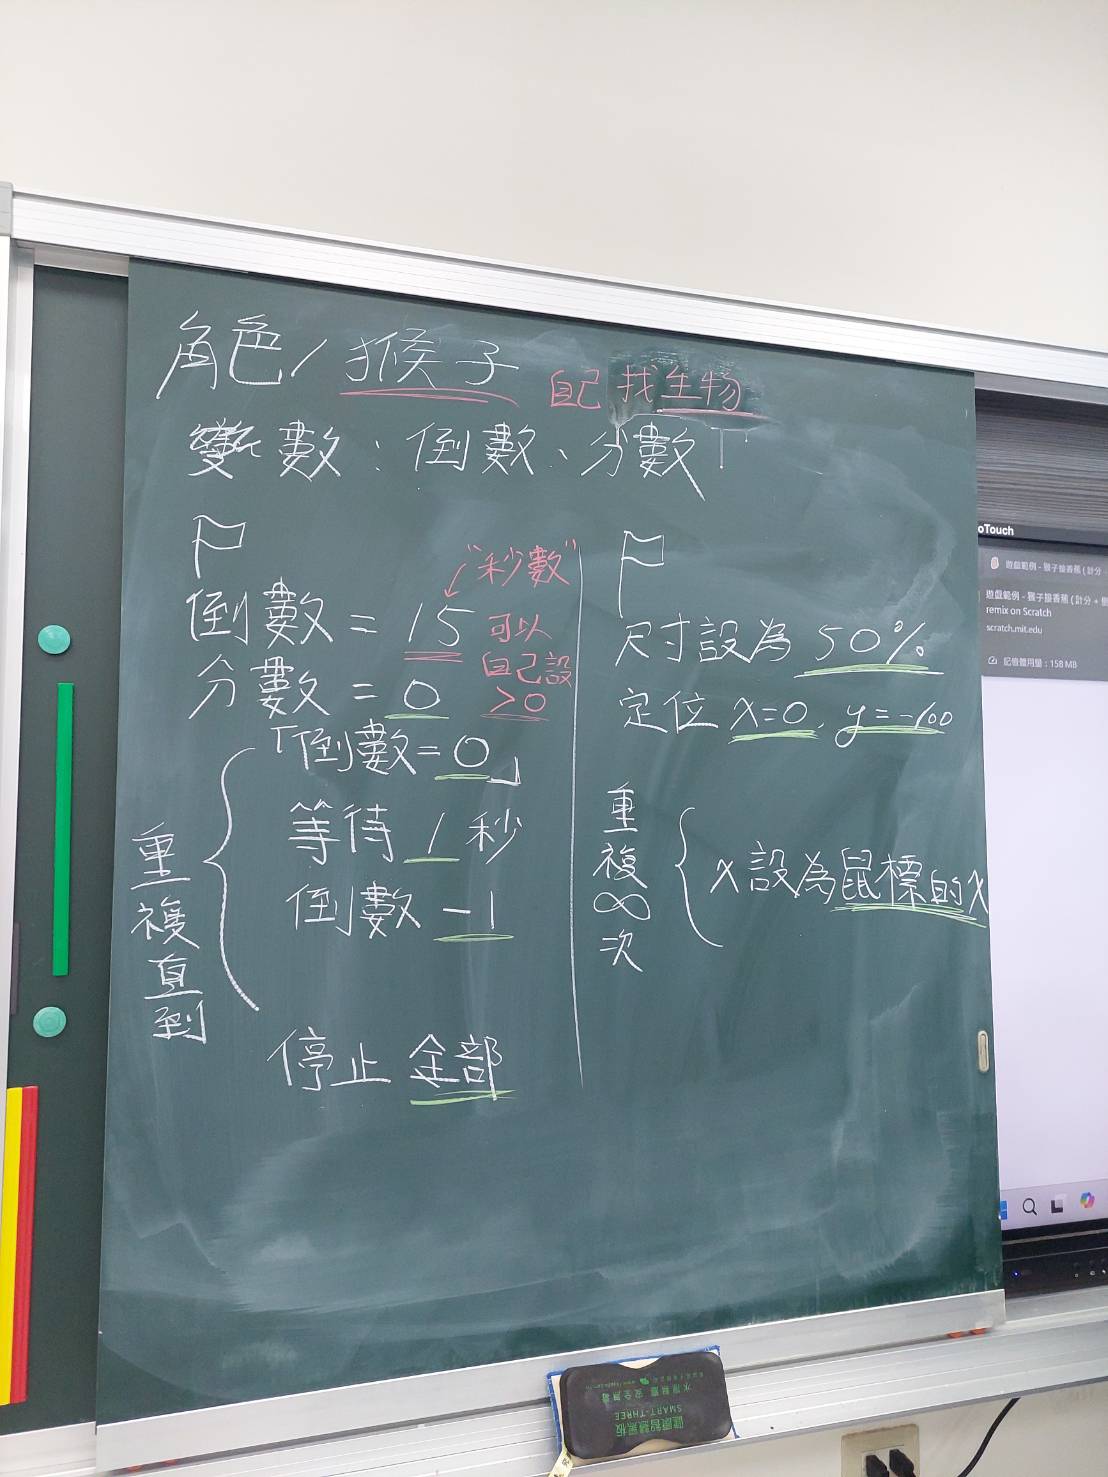 角色/猴子 自己找生物
變數：倒數、分數
倒數 = 15
"秒數"
可以
自己設
>0
分數 = 0
重複直到
「倒數=0」
等待 1 秒
倒數 -1
停止 全部
尺寸設為 50%
定位 x=0, y=-100
重複∞次
x設為鼠標的x
oTouch
遊戲範例 - 猴子接香蕉 ( 計分
遊戲範例 - 猴子接香蕉 ( 計分 + 倒
remix on Scratch
scratch.mit.edu
記憶體用量：158 MB
SMART-THREE